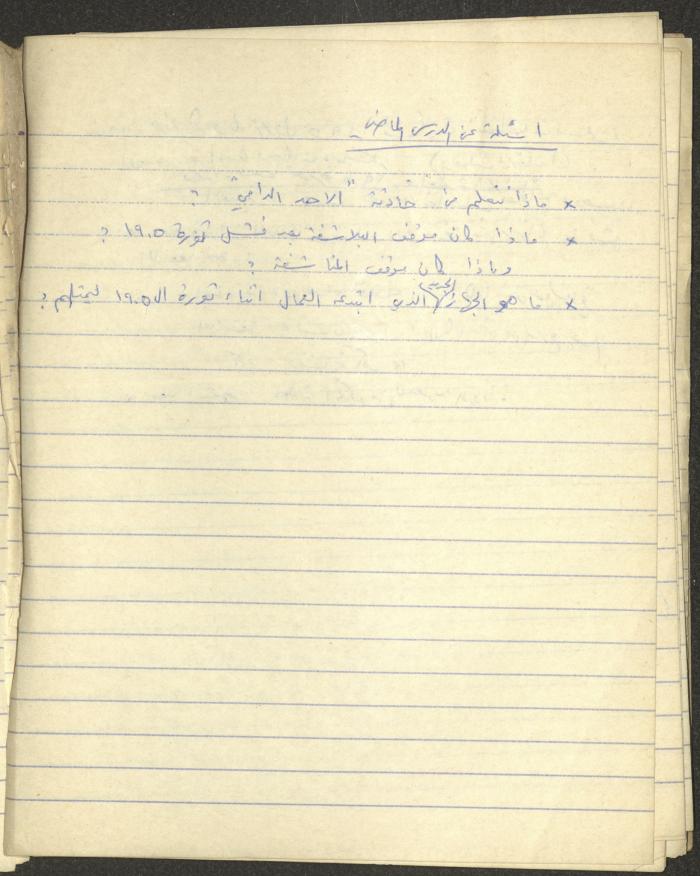 اسئلة عن الدرس الماضي
× ماذا نتعلم من حادثة "الاحد الدامي" ؟
× ماذا كان موقف البلاشفة بعد فشل ثورة ١٩٠٥ ؟
وماذا كان موقف المناشفة ؟
× ما هو الجهاز الجديد الذي ابتدعه العمال اثناء ثورة ال ١٩٠٥ ليمثلهم ؟